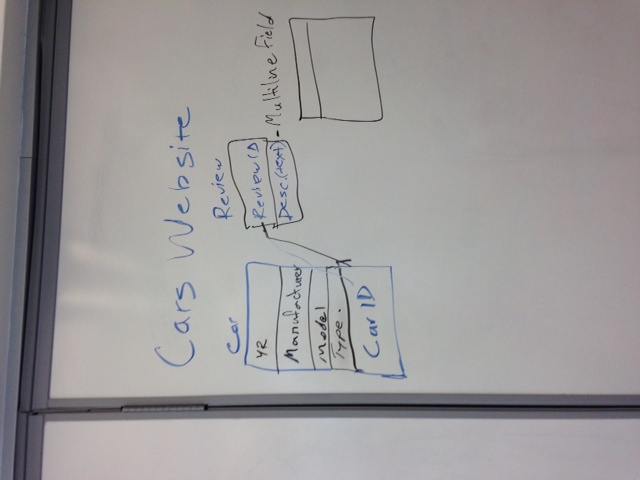 Cars Website
Car
YR
Manufacturer
Model
Type.
Car ID
Review
Review ID
Desc.(text) - Multiline Field